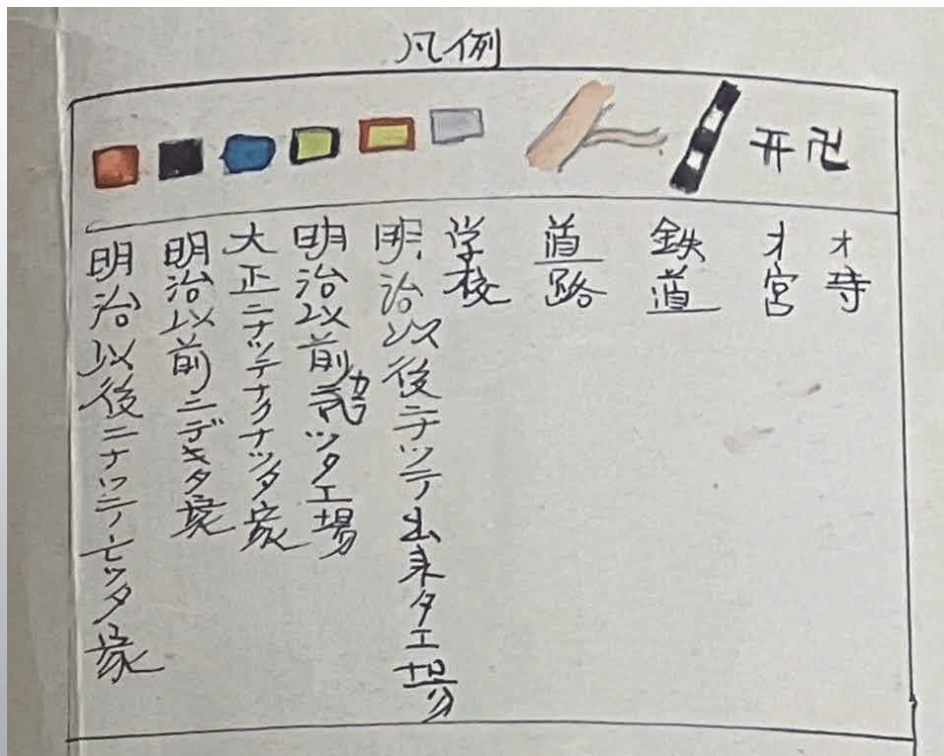 凡例
オ寺
オ宮
鉄道
道路
学校
明治以後ニナッテ出来タ工場
明治以前カラッタ工場
大正ニナッテナクナッタ家
明治以前ニデキタ家
明治以後ニナッテ亡ッタ家